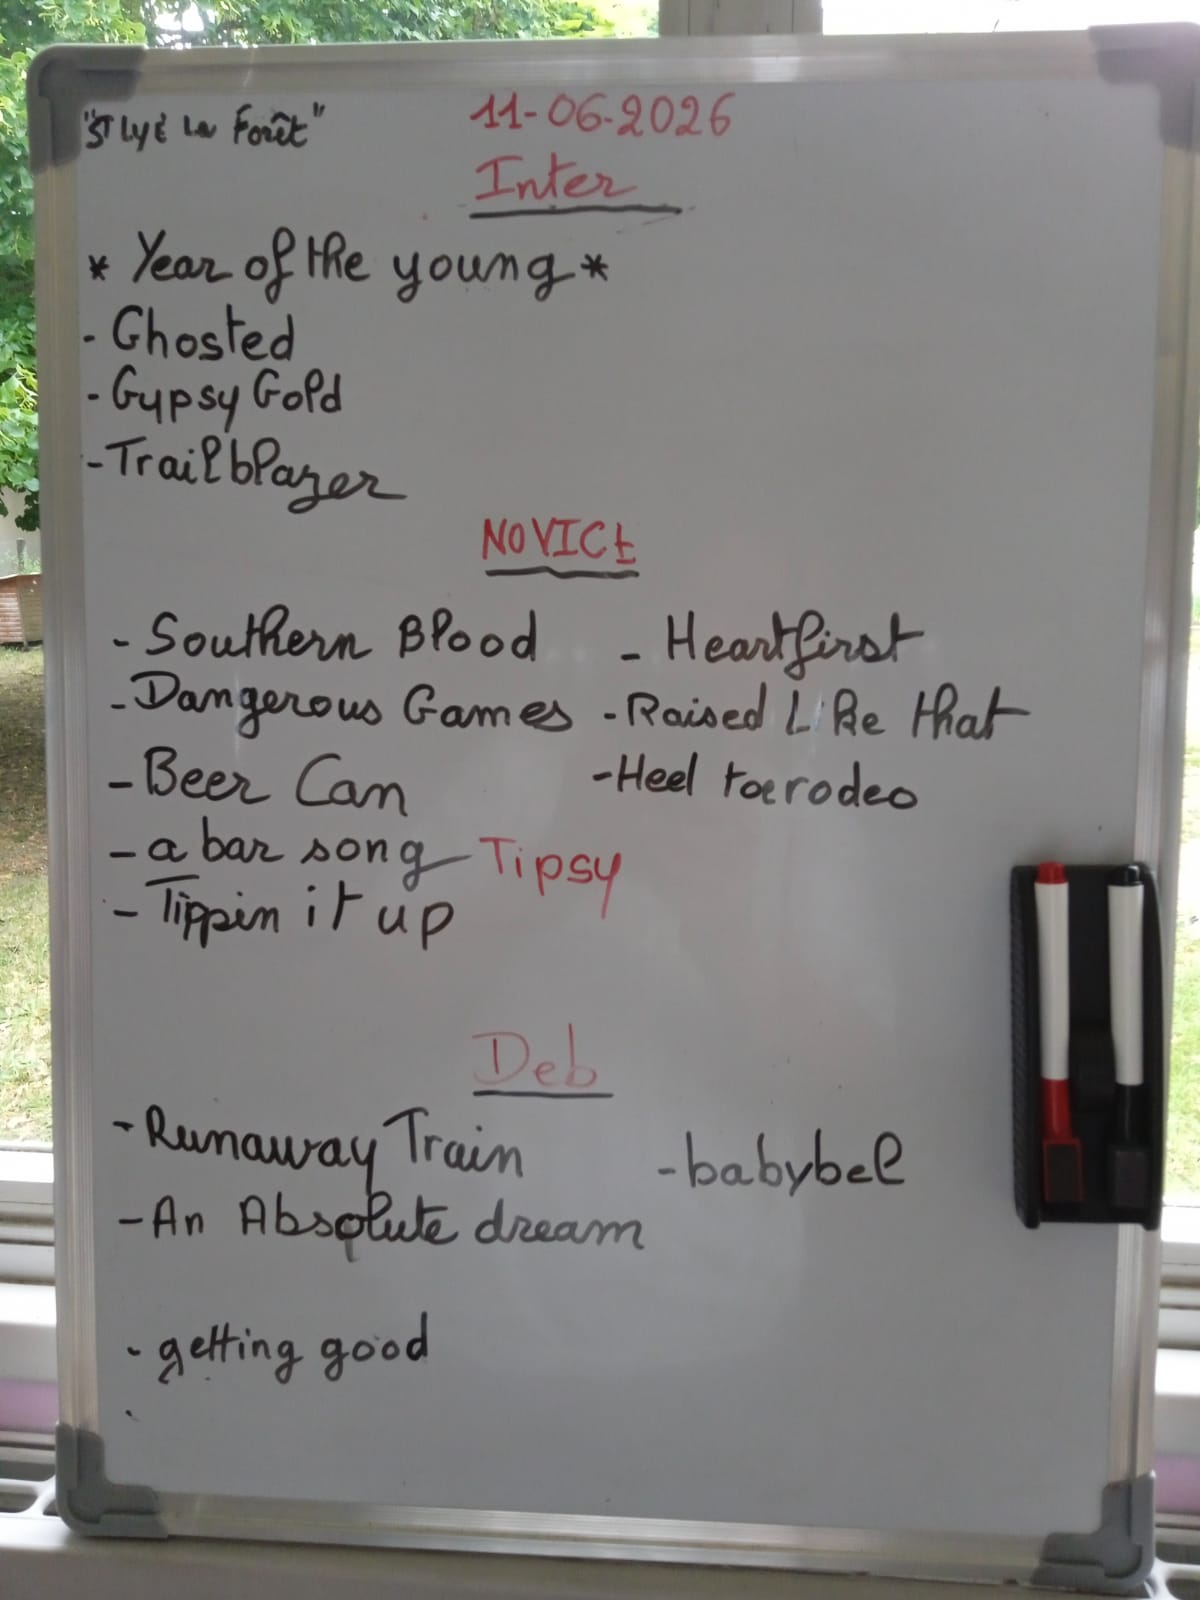 "St Lyé La Forêt"
11-06-2026
Inter
* Year of the young *
- Ghosted
- Gypsy Gold
- Trailblazer
NOVICE
- Southern Blood
- Heartfirst
- Dangerous Games
- Raised Like that
- Beer Can
- Heel toe rodeo
- a bar song Tipsy
- Tippin it up
Deb
- Runaway Train
- babybel
- An Absolute dream
- getting good